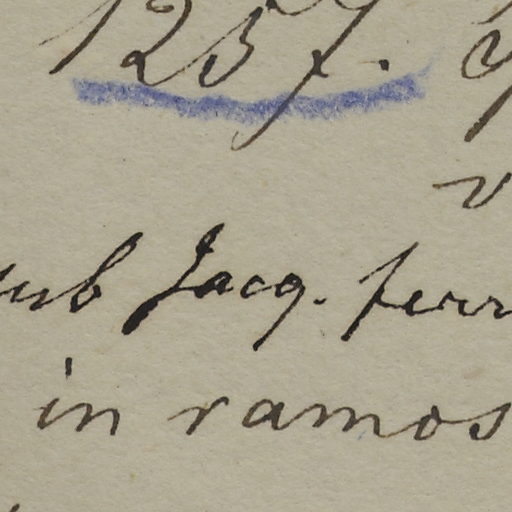 1257.
sub Jacq. ferr
in ramos